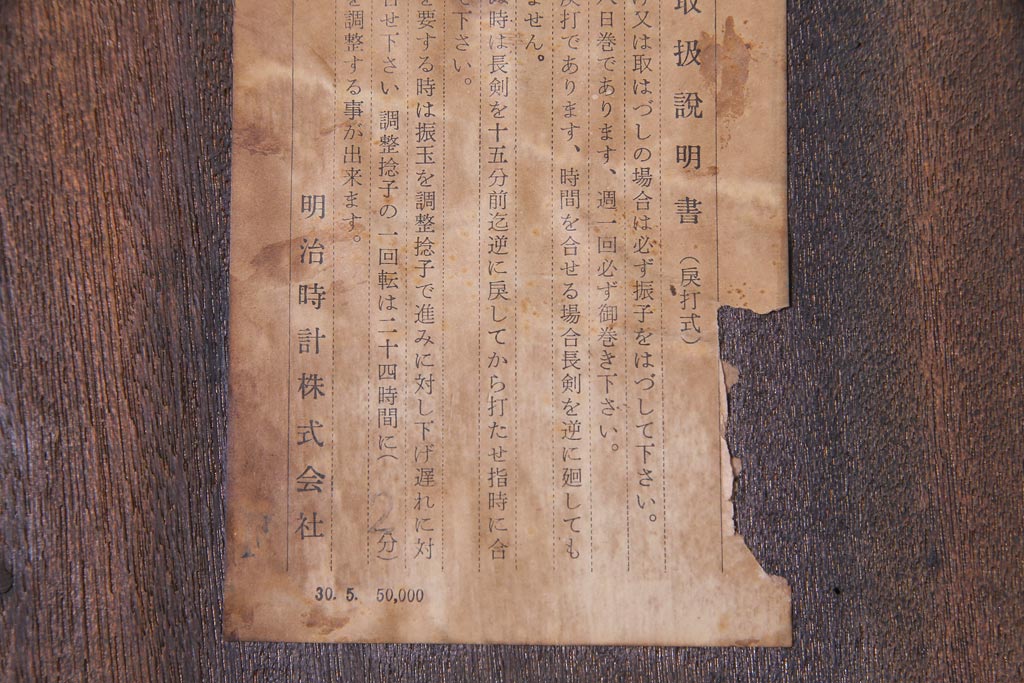 取扱説明書（戻打式）
け又は取はづしの場合は必ず振子をはづして下さい。
八日巻であります、週一回必ず御巻き下さい。
戻打であります、時間を合せる場合長剣を逆に廻しても
ません。
時は長剣を十五分前迄逆に戻してから打たせ指時に合
て下さい。
を要する時は振玉を調整捻子で進みに対し下げ遅れに対
合せ下さい 調整捻子の一回転は二十四時間に（2分）
を調整する事が出来ます。
明治時計株式会社
30. 5. 50,000